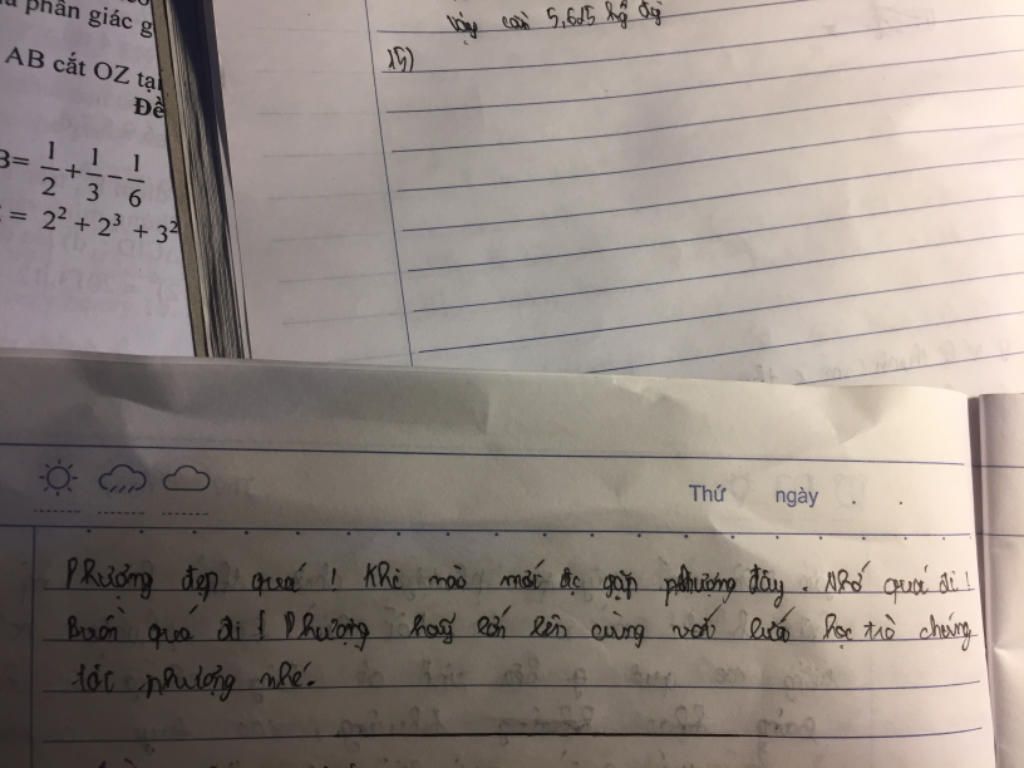 phân giác g
AB cắt OZ tại
Đề
B= 1/2 + 1/3 − 1/6
= 2² + 2³ + 3²
5,625 kg
15)
Thứ ngày . .
Phượng đẹp quá ! Khi nào mới đc gặp phượng đây . Nhớ quá đi !
Buồn quá đi ! Phượng hãy lớn lên cùng với lứa học trò chúng
tớc phượng nhé.